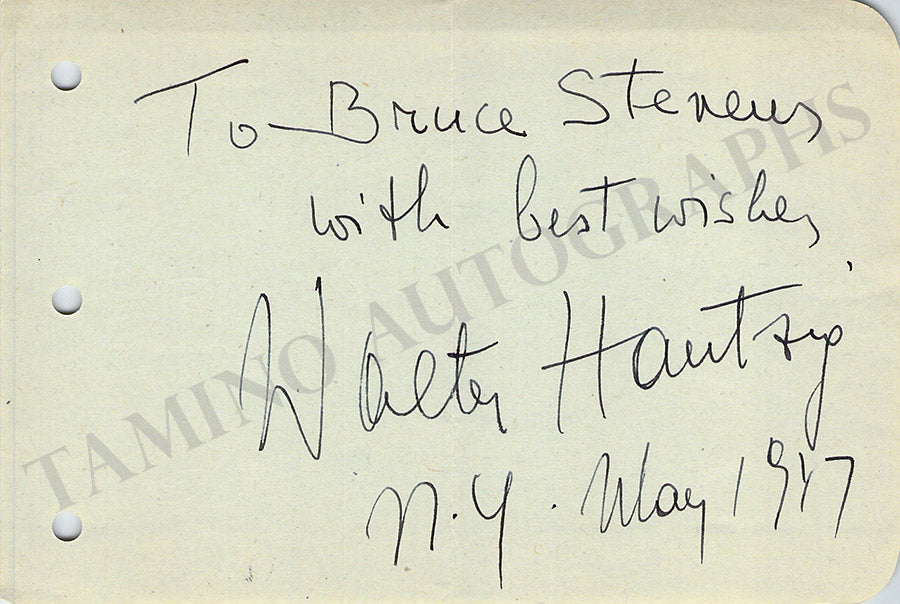 To Bruce Stevens
with best wishes,
Walter Hautzig
N.Y. May 1947
TAMINO AUTOGRAPHS